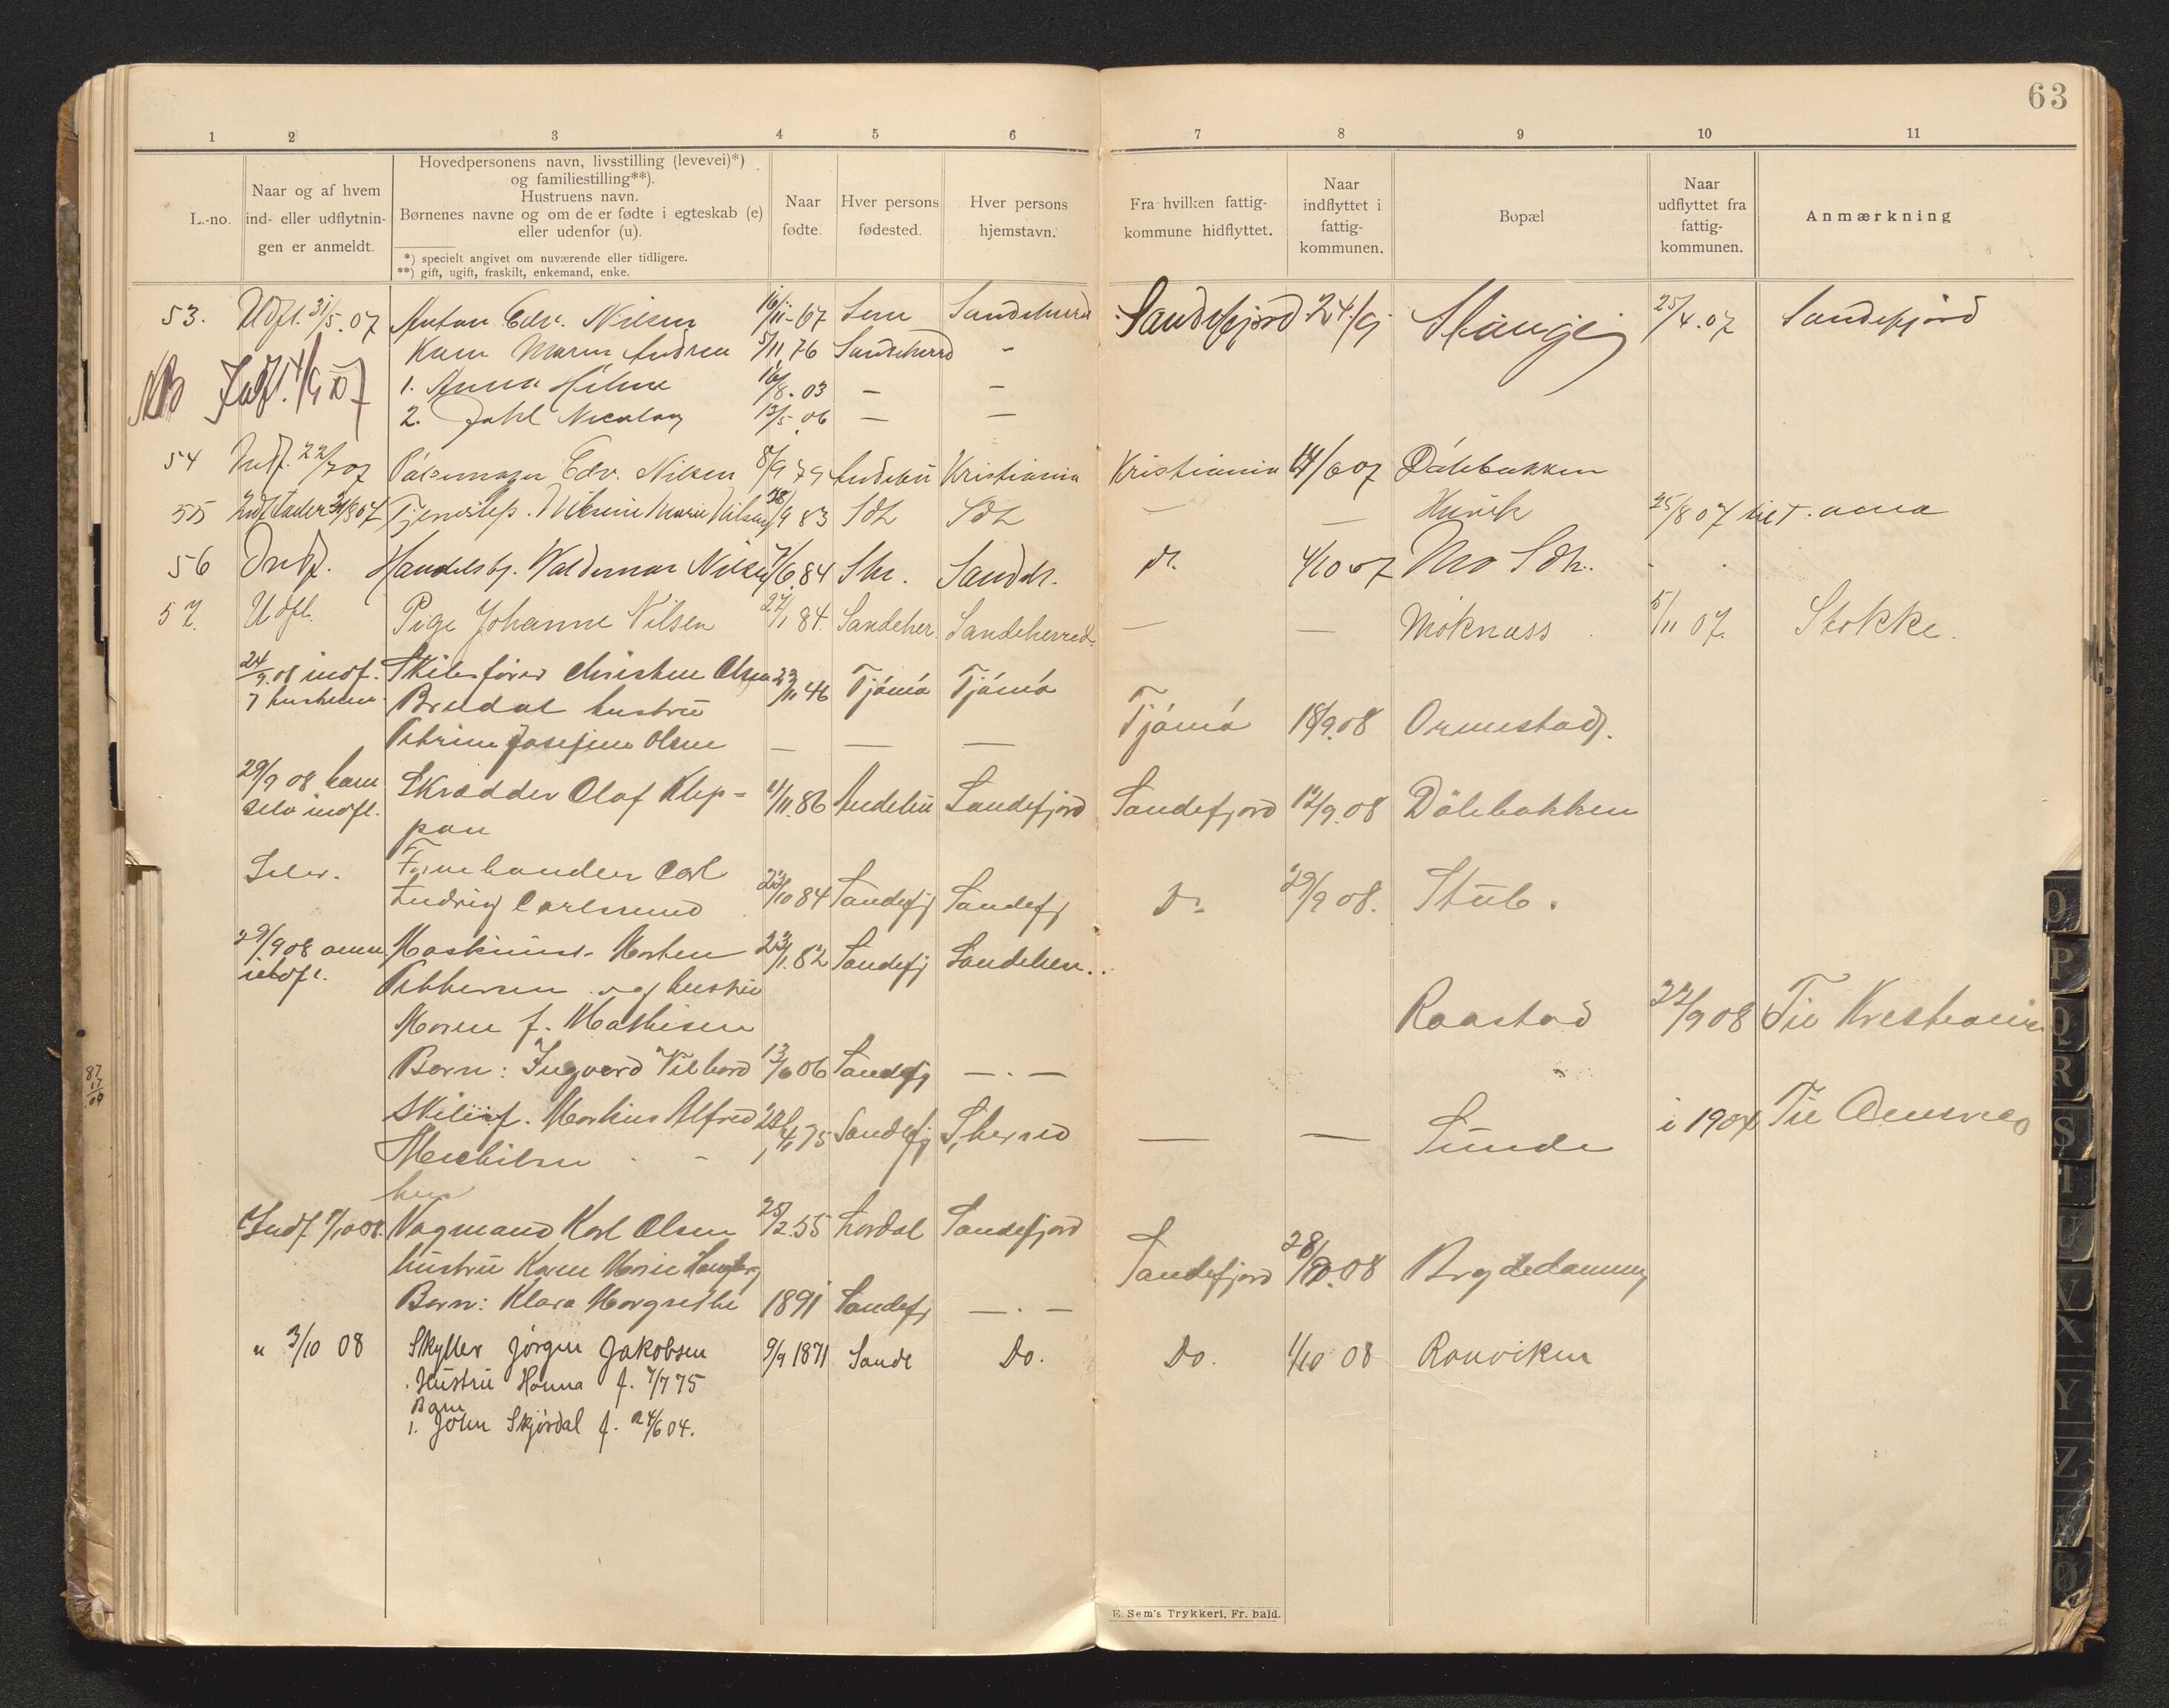 63
1 2 3 4 5 6 7 8 9 10 11
L.-no.
Naar og af hvem
ind- eller udflytnin-
gen er anmeldt.
Hovedpersonens navn, livsstilling (levevei)*)
og familiestilling**).
Hustruens navn.
Børnenes navne og om de er fødte i egteskab (e)
eller udenfor (u).
*) specielt angivet om nuværende eller tidligere.
**) gift, ugift, fraskilt, enkemand, enke.
Naar
fødte.
Hver persons
fødested.
Hver persons
hjemstavn.
Fra hvilken fattig-
kommune hidflyttet.
Naar
indflyttet i
fattig-
kommunen.
Bopæl
Naar
udflyttet fra
fattig-
kommunen.
Anmærkning
53. Udfl. 31/5.07 Anton Edv. Nilsen 16/11-67 Sem Sandeherred Sandefjord 24/9 25/4.07 Sandefjord
Karen Maren Andrea 5/11 76 Sandeherred -
NB Indf. 4/9 07 1. Anna Hilma 16/8.03 - -
2. Jahl Nicolay 13/5.06 - -
54 Indf. 22/7 07 Edv. Nilsen 8/9 79 Andebu Kristiania Kristiania 14/6 07 Dölebakken
55 31/8 07 Tjenestep. Nilsine Marie Nilsen 28/9 83 Sdh Sdh - - Huvik 25/8 07 til T. ama
56 Indf. Handelsbj. Waldemar Nilsen 7/6.84 Shr. Sandeh. Do. 4/10 07 Mo Sdh.
57. Udfl. Pige Johanne Nilsen 27/1 84. Sandeher. Sandeherred. - - Moknass 5/11 07. Stokke.
24/9.08 indf. Skibsfører Christen Olsen 23/11 46 Tjömö Tjömö
7 hustruen. Bredal hustru Tjömö 18/9.08 Ormestad.
Petrine Josefine Olsen - - -
29/9 08 ham Skrædder Olaf Klep- 4/11.86 Andebu Sandefjord Sandefjord 12/9.08 Dölebakken
selv indfl. pan
Selv. Carl
Ludvig Carlsund 23/10 84 Sandefj Sandefj Do. 29/9 08. Stub.
29/9 08 anm. Maskinist. Morten 23/1.82 Sandefj Sandeher.
indfl. Pettersen og hustru
Maren f. Mathisen Raastad 22/9 08 Til Kristiania
Barn: Ingvard Vilhard 13/6 06 Sandefj - . -
Skibsf. Markus Alfred 28/4 75 Sandefj S.herred - - Sunde i 1904 Til
Mechelsen
hus
Indf. 7/10 08. Vagmand Karl Olsen 25/2.55 Lardal Sandefjord
hustru Karen Marie Sandefjord 28/9.08 Brydedammen
Barn: Klara Margrethe 1891 Sandefj - . -
" 3/10 08 Skytter Jörgen Jakobsen 9/9 1871 Sande Do. Do. 1/10 08 Ranviken
Hustru Hanna f. 7/7 75
Barn
1. John Skjördal f. 24/6 04.
87
17
04
E. Sem's Trykkeri, Fr.hald.
O
P
Q
R
S
T
U
V
X
Y
Z
Ø